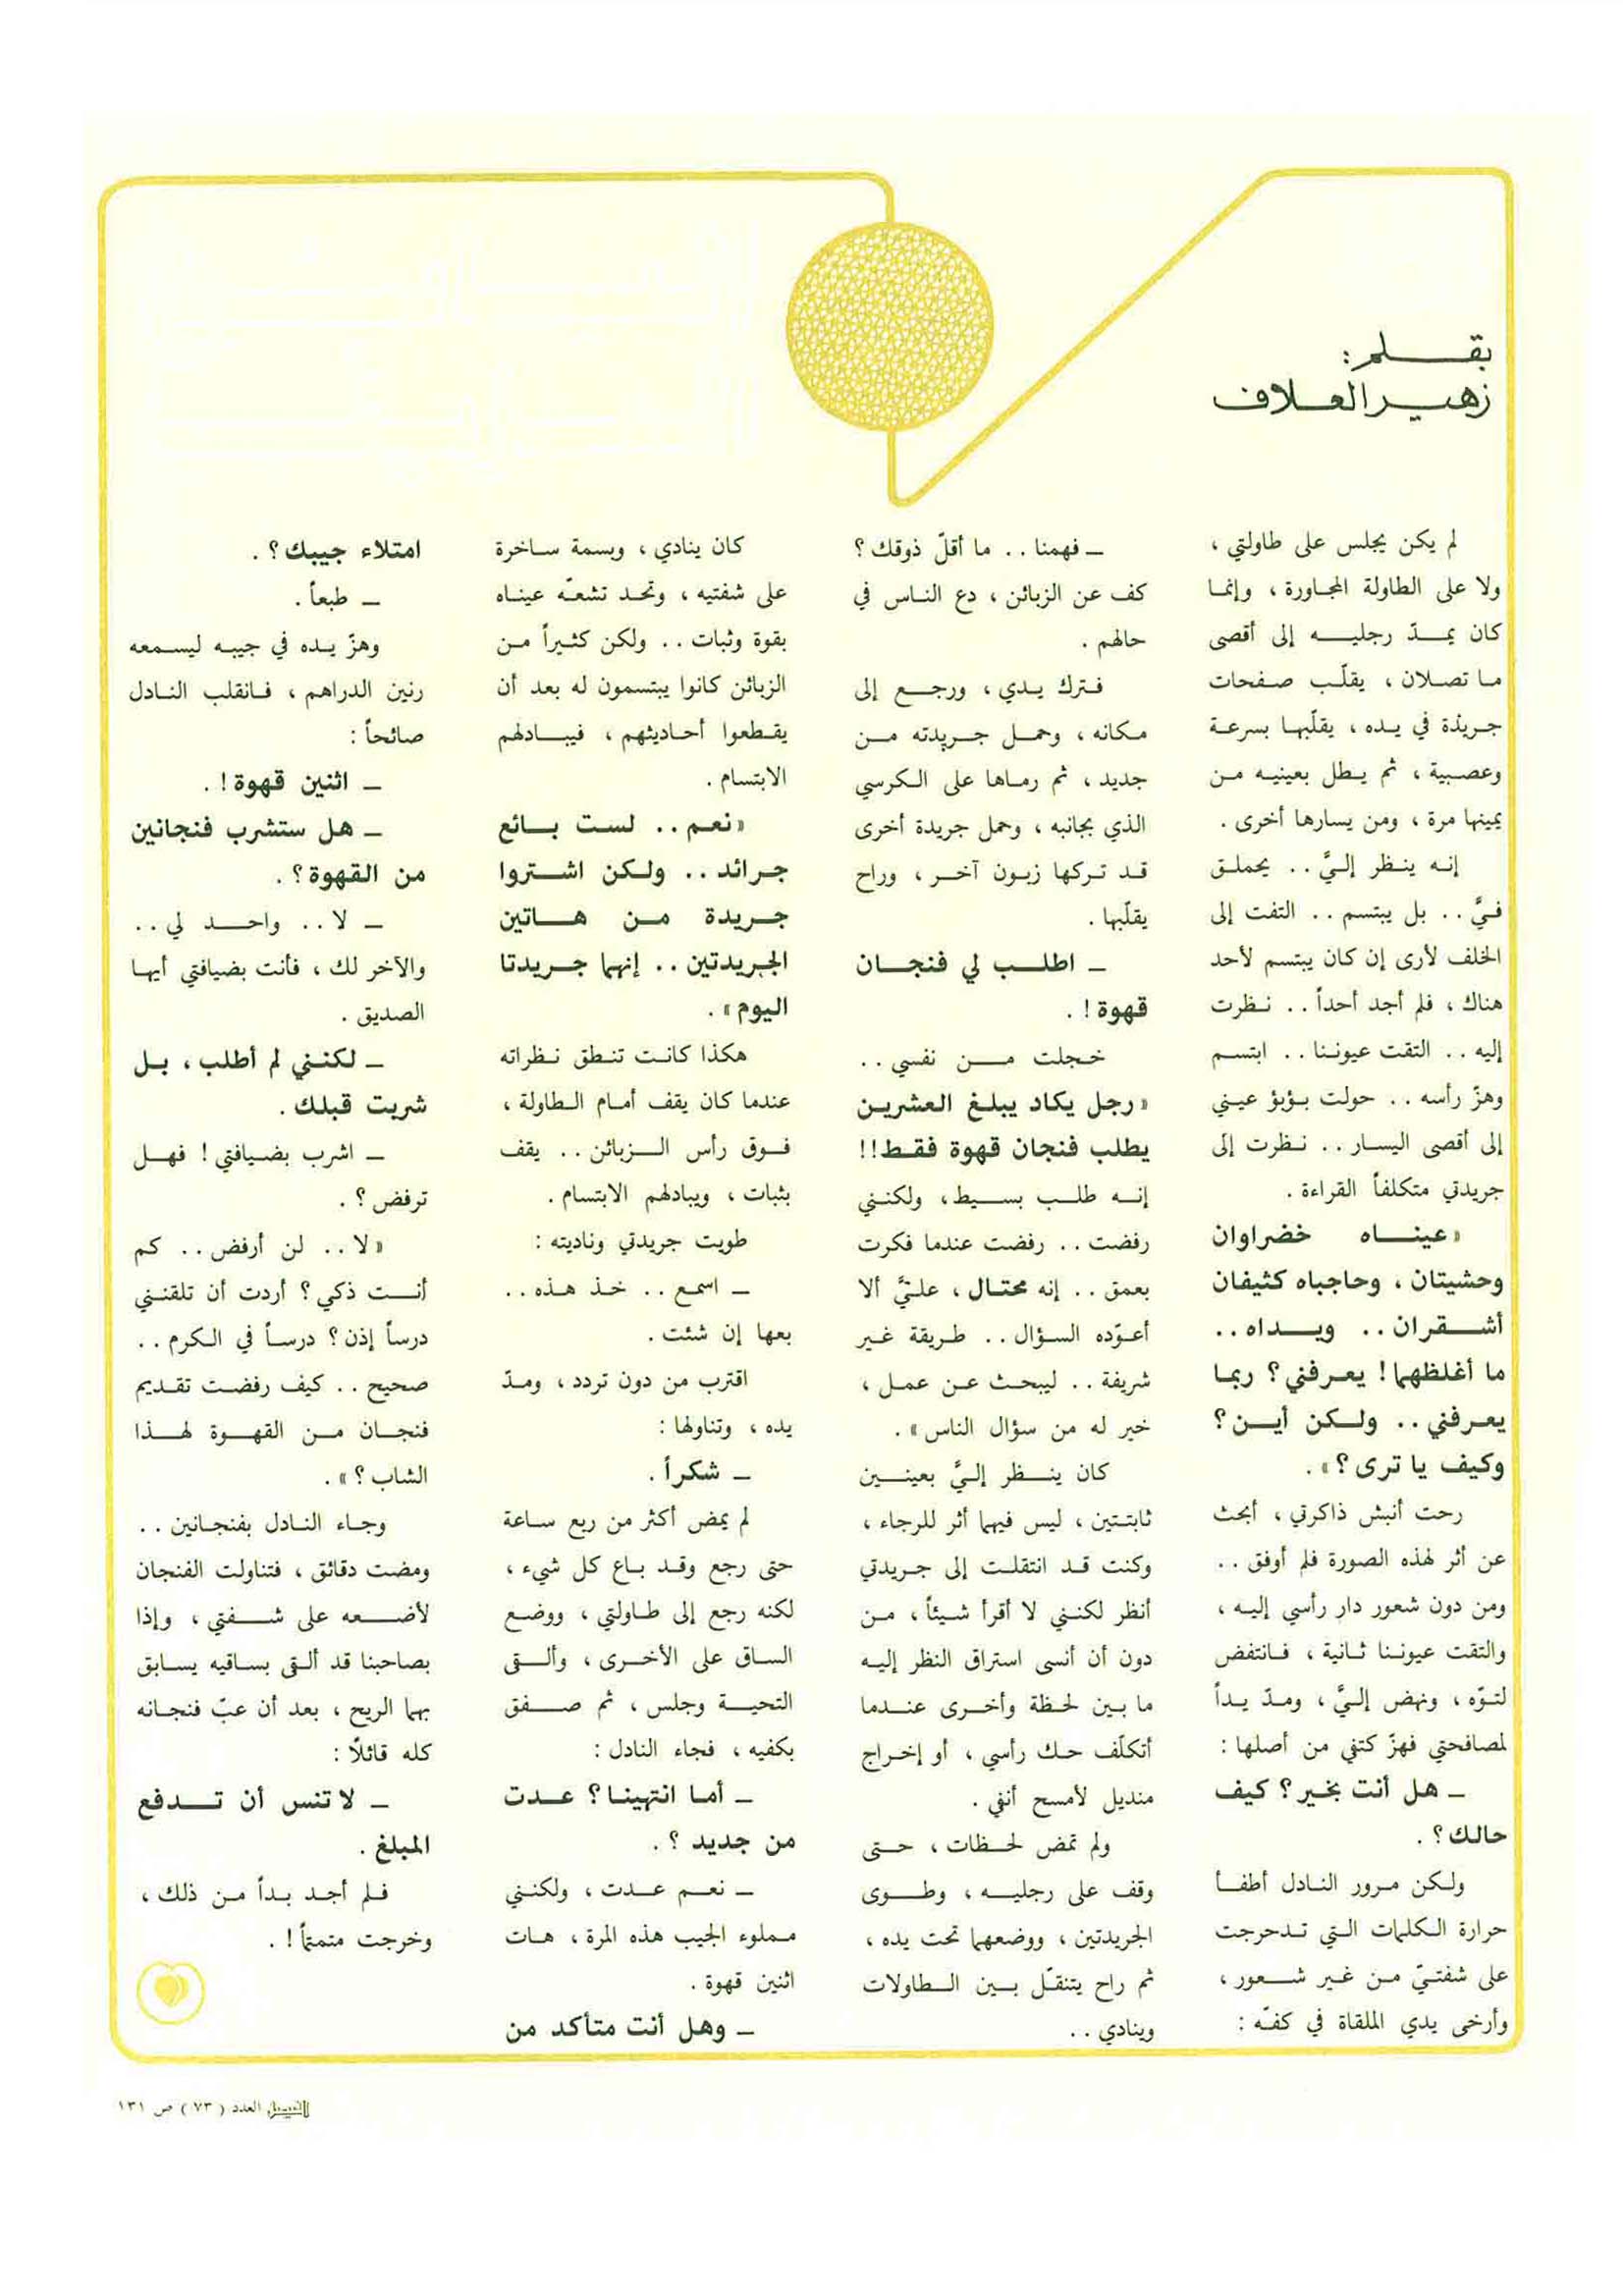 بقلم:
زهير العلاف
لم يكن يجلس على طاولتي ،
ولا على الطاولة المجاورة ، وإنما
كان يمدّ رجليه إلى أقصى
ما تصلان ، يقلّب صفحات
جريدة في يده ، يقلّبها بسرعة
وعصبية ، ثم يطل بعينيه من
يمينها مرة ، ومن يسارها أخرى .
إنه ينظر إليَّ . . يحملق
فيَّ . . بل يبتسم . . التفت إلى
الخلف لأرى إن كان يبتسم لأحد
هناك ، فلم أجد أحداً . . نظرت
إليه . . التقت عيوننا . . ابتسم
وهزّ رأسه . . حولت بؤبؤ عيني
إلى أقصى اليسار . . نظرت إلى
جريدتي متكلفاً القراءة .
« عيناه خضراوان
وحشيتان ، وحاجباه كثيفان
أشقران . . ويداه . .
ما أغلظهما ! يعرفني ؟ ربما
يعرفني . . ولكن أين ؟
وكيف يا ترى ؟ » .
رحت أنبش ذاكرتي ، أبحث
عن أثر لهذه الصورة فلم أوفق . .
ومن دون شعور دار رأسي إليه ،
والتقت عيوننا ثانية ، فانتفض
لتوّه ، ونهض إليَّ ، ومدّ يداً
لمصافحتي فهزّ كتفي من أصلها :
ـ هل أنت بخير ؟ كيف
حالك ؟ .
ولكن مرور النادل أطفأ
حرارة الكلمات التي تدحرجت
على شفتيّ من غير شعور ،
وأرخى يدي الملقاة في كفّه :
ـ فهمنا . . ما أقلّ ذوقك ؟
كف عن الزبائن ، دع الناس في
حالهم .
فترك يدي ، ورجع إلى
مكانه ، وحمل جريدته من
جديد ، ثم رماها على الكرسي
الذي بجانبه ، وحمل جريدة أخرى
قد تركها زبون آخر ، وراح
يقلّبها .
ـ اطلب لي فنجان
قهوة ! .
خجلت من نفسي . .
« رجل يكاد يبلغ العشرين
يطلب فنجان قهوة فقط !!
إنه طلب بسيط ، ولكنني
رفضت . . رفضت عندما فكرت
بعمق . . إنه محتال ، عليَّ ألا
أعوّده السؤال . . طريقة غير
شريفة . . ليبحث عن عمل ،
خير له من سؤال الناس » .
كان ينظر إليَّ بعينين
ثابتتين ، ليس فيهما أثر للرجاء ،
وكنت قد انتقلت إلى جريدتي
أنظر لكنني لا أقرأ شيئاً ، من
دون أن أنسى استراق النظر إليه
ما بين لحظة وأخرى عندما
أتكلّف حك رأسي ، أو إخراج
منديل لأمسح أنفي .
ولم تمض لحظات ، حتى
وقف على رجليه ، وطوى
الجريدتين ، ووضعهما تحت يده ،
ثم راح يتنقّل بين الطاولات
وينادي . .
كان ينادي ، وبسمة ساخرة
على شفتيه ، وتحد تشعّه عيناه
بقوة وثبات . . ولكن كثيراً من
الزبائن كانوا يبتسمون له بعد أن
يقطعوا أحاديثهم ، فيبادلهم
الابتسام .
« نعم . . لست بائع
جرائد . . ولكن اشتروا
جريدة من هاتين
الجريدتين . . إنهما جريدتا
اليوم » .
هكذا كانت تنطق نظراته
عندما كان يقف أمام الطاولة ،
فوق رأس الزبائن . . يقف
بثبات ، ويبادلهم الابتسام .
طويت جريدتي وناديته :
ـ اسمع . . خذ هذه . .
بعها إن شئت .
اقترب من دون تردد ، ومدّ
يده ، وتناولها :
ـ شكراً .
لم يمض أكثر من ربع ساعة
حتى رجع وقد باع كل شيء ،
لكنه رجع إلى طاولتي ، ووضع
الساق على الأخرى ، وألقى
التحية وجلس ، ثم صفق
بكفيه ، فجاء النادل :
ـ أما انتهينا ؟ عدت
من جديد ؟ .
ـ نعم عدت ، ولكنني
مملوء الجيب هذه المرة ، هات
اثنين قهوة .
ـ وهل أنت متأكد من
امتلاء جيبك ؟ .
ـ طبعاً .
وهزّ يده في جيبه ليسمعه
رنين الدراهم ، فانقلب النادل
صائحاً :
ـ اثنين قهوة ! .
ـ هل ستشرب فنجانين
من القهوة ؟ .
ـ لا . . واحد لي . .
والآخر لك ، فأنت بضيافتي أيها
الصديق .
ـ لكنني لم أطلب ، بل
شربت قبلك .
ـ اشرب بضيافتي ! فهل
ترفض ؟ .
« لا . . لن أرفض . . كم
أنت ذكي ؟ أردت أن تلقنني
درساً إذن ؟ درساً في الكرم . .
صحيح . . كيف رفضت تقديم
فنجان من القهوة لهذا
الشاب ؟ » .
وجاء النادل بفنجانين . .
ومضت دقائق ، فتناولت الفنجان
لأضعه على شفتي ، وإذا
بصاحبنا قد ألقى بساقيه يسابق
بهما الريح ، بعد أن عبّ فنجانه
كله قائلاً :
ـ لا تنس أن تدفع
المبلغ .
فلم أجد بداً من ذلك ،
وخرجت متمتماً ! .
الفيصل العدد ( ٧٣ ) ص ١٣١